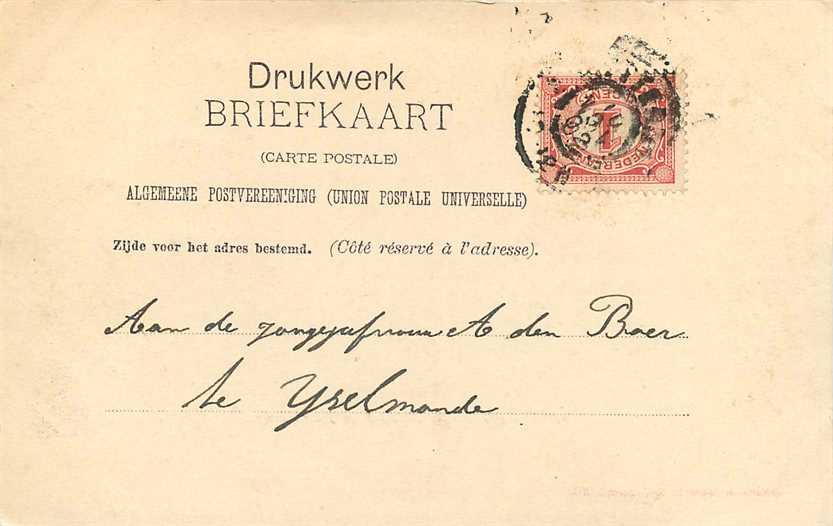 Drukwerk
BRIEFKAART
(CARTE POSTALE)
ALGEMEENE POSTVEREENIGING (UNION POSTALE UNIVERSELLE)
Zijde voor het adres bestemd. (Côté réservé à l'adresse).
Aan de A den Boer
te Yselmonde
1